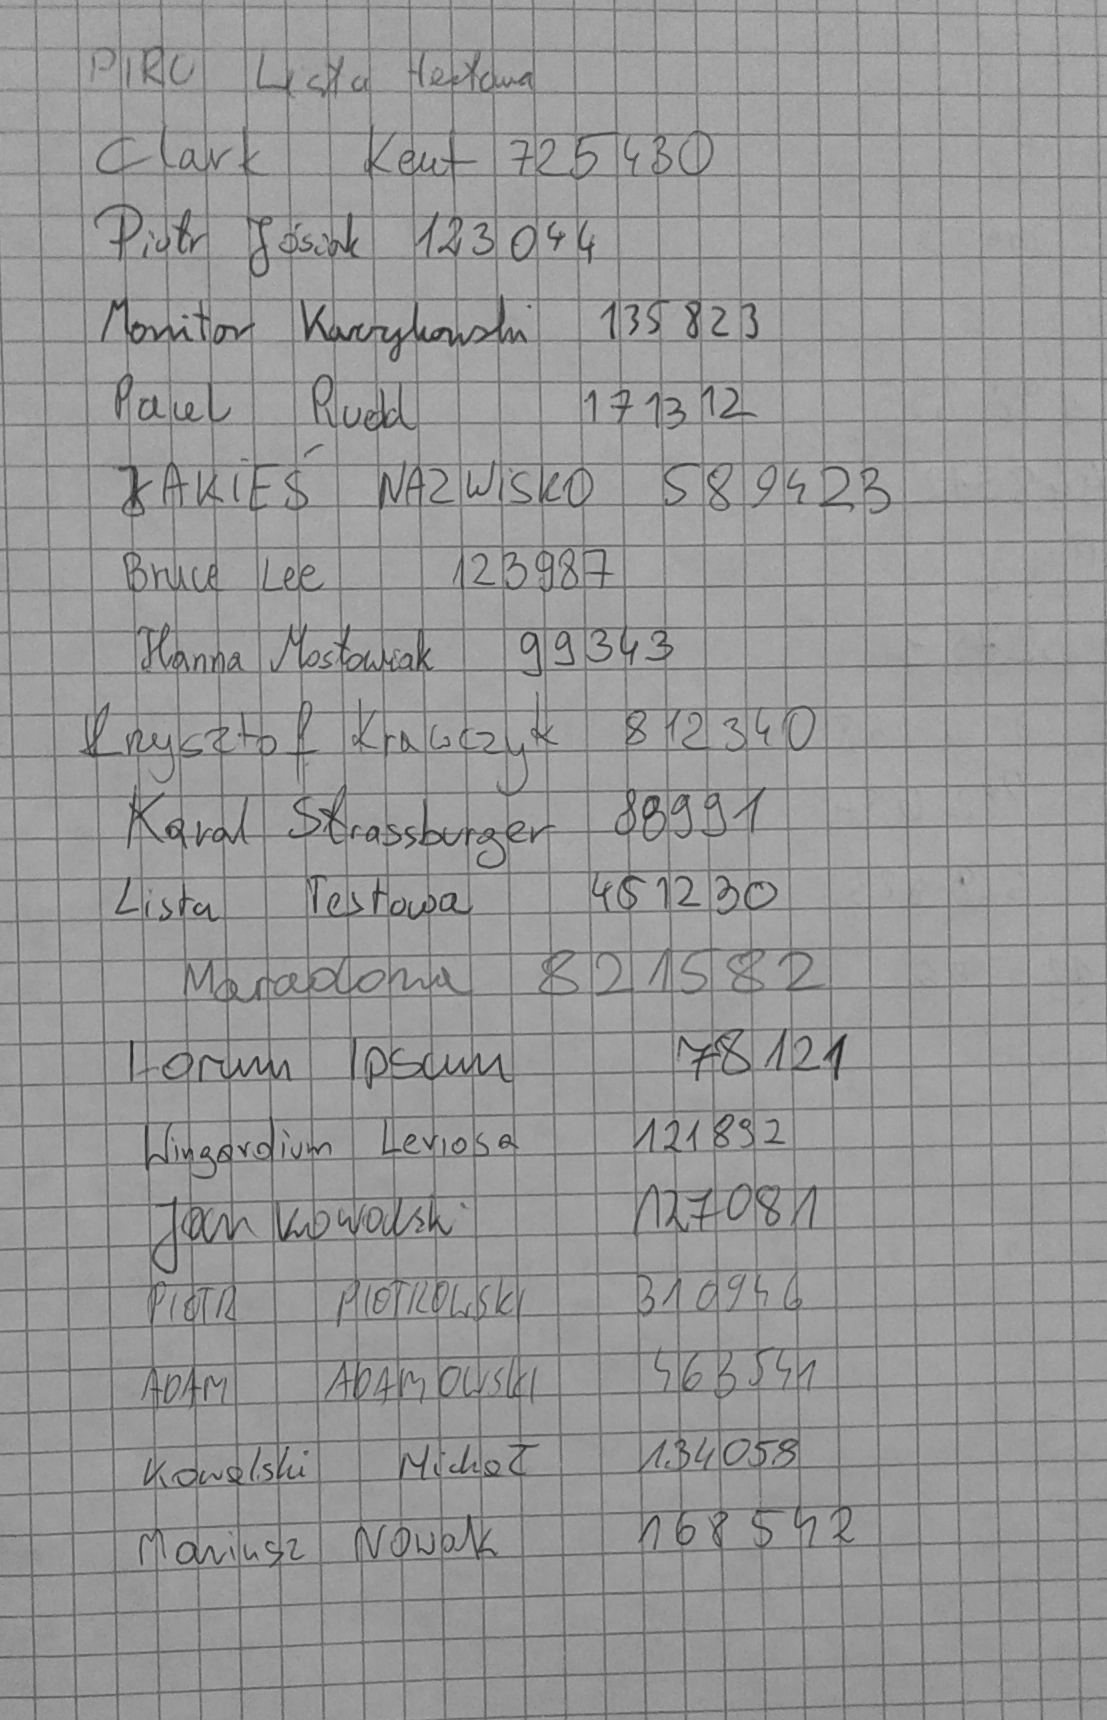 PIRO Lista testowa
Clark Kent 725430
Piotr Jósiak 123044
Monitor Kurzykowski 135823
Paul Rudd 171312
JAKIEŚ NAZWISKO 589423
Bruce Lee 123987
Hanna Mostowiak 99343
Krzysztof Krawczyk 812340
Karol Strassburger 88991
Lista Testowa 451230
Maradona 821582
Lorum Ipsum 78121
Wingardium Leviosa 121892
Jan Kowalski 127081
PIOTR PIOTROWSKI 310946
ADAM ADAMOWSKI 463541
Kowalski Michał 134058
Mariusz Nowak 168542